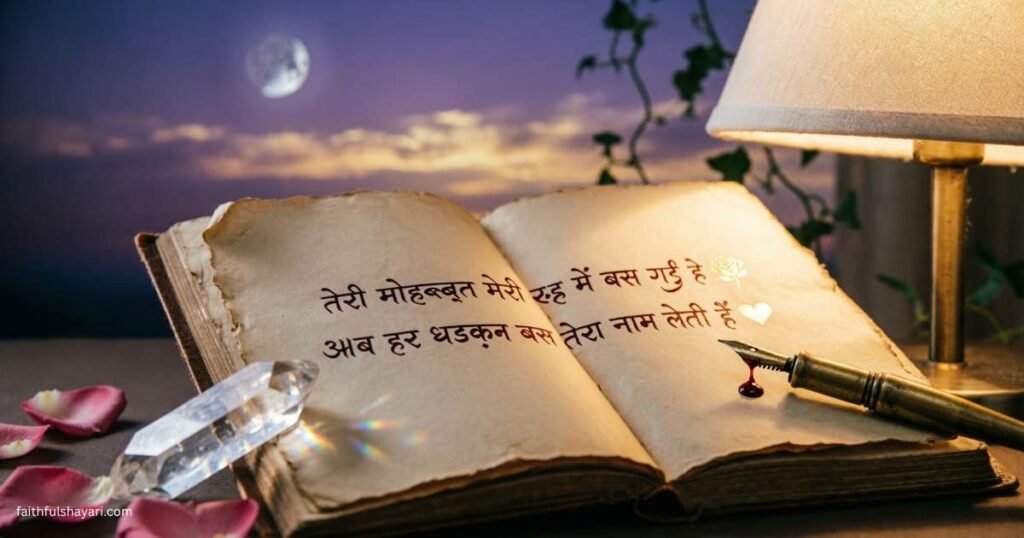 तेरी मोहब्ब्त मेरी रूह में बस गई है
आब हर धडक़न बस तेरा नाम लेती हैं
faithfulshayari.com